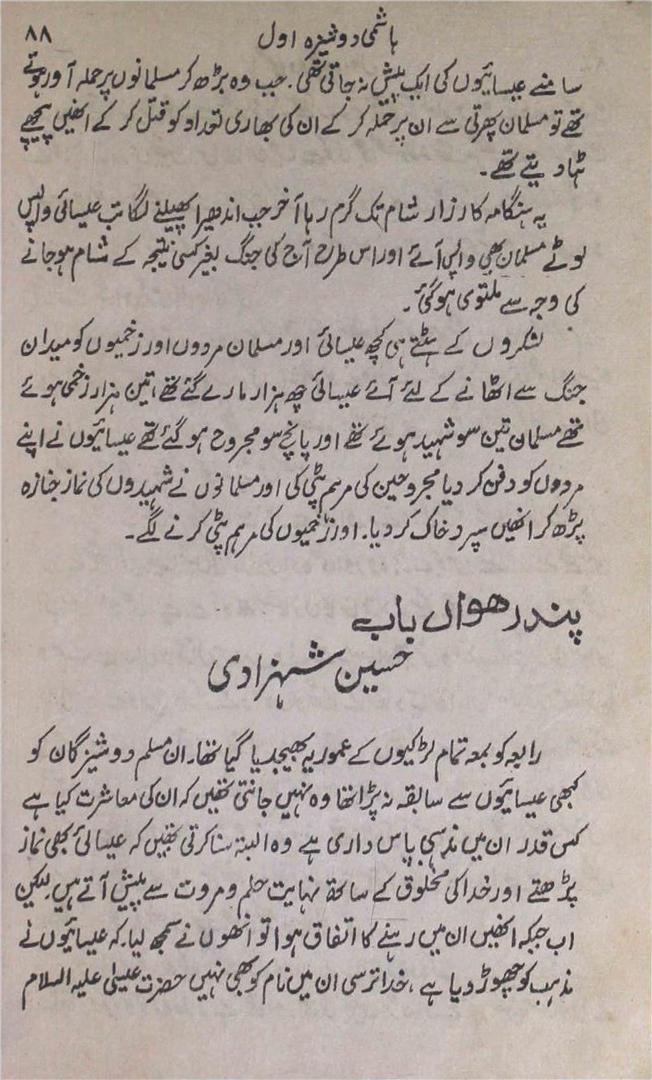 ہاشمی دوشیزہ اول ۸۸
سامنے عیسائیوں کی ایک پیش نہ جاتی تھی۔ جب وہ بڑھ کر مسلمانوں پر حملہ آور ہوتے
تھے تو مسلمان پھرتی سے ان پر حملہ کر کے ان کی بھاری تعداد کو قتل کر کے انھیں پیچھے
ہٹا دیتے تھے۔
یہ ہنگامہ کارزار شام تک گرم رہا آخر جب اندھیرا پھیلنے لگا تب عیسائی واپس
لوٹے مسلمان بھی واپس آئے اور اس طرح آج کی جنگ بغیر کسی نتیجہ کے شام ہو جانے
کی وجہ سے ملتوی ہو گئی۔
لشکروں کے ہٹتے ہی کچھ عیسائی اور مسلمان مردوں اور زخمیوں کو میدان
جنگ سے اٹھانے کے لئے آئے عیسائی چھ ہزار مارے گئے تھے، تین ہزار زخمی ہوئے
تھے مسلمان تین سو شہید ہوئے تھے اور پانچ سو مجروح ہو گئے تھے عیسائیوں نے اپنے
مردوں کو دفن کر دیا مجروحین کی مرہم پٹی کی اور مسلمانوں نے شہیدوں کی نماز جنازہ
پڑھ کر انھیں سپرد خاک کر دیا۔ اور زخمیوں کی مرہم پٹی کرنے لگے۔
پندرھواں باب
حسین شہزادی
رابعہ کو بمعہ تمام لڑکیوں کے عموریہ بھیجدیا گیا تھا۔ ان مسلم دوشیزگان کو
کبھی عیسائیوں سے سابقہ نہ پڑا تھا وہ نہیں جانتی تھیں کہ ان کی معاشرت کیا ہے
کس قدر ان میں مذہبی پاس داری ہے وہ البتہ سنا کرتی تھیں کہ عیسائی بھی نماز
پڑھتے اور خدا کی مخلوق کے ساتھ نہایت حلم و مروت سے پیش آتے ہیں لیکن
اب جبکہ انھیں ان میں رہنے کا اتفاق ہوا تو انھوں نے سمجھ لیا۔ کہ عیسائیوں نے
مذہب کو چھوڑ دیا ہے، خدا ترسی ان میں نام کو بھی نہیں حضرت عیسیٰ علیہ السلام